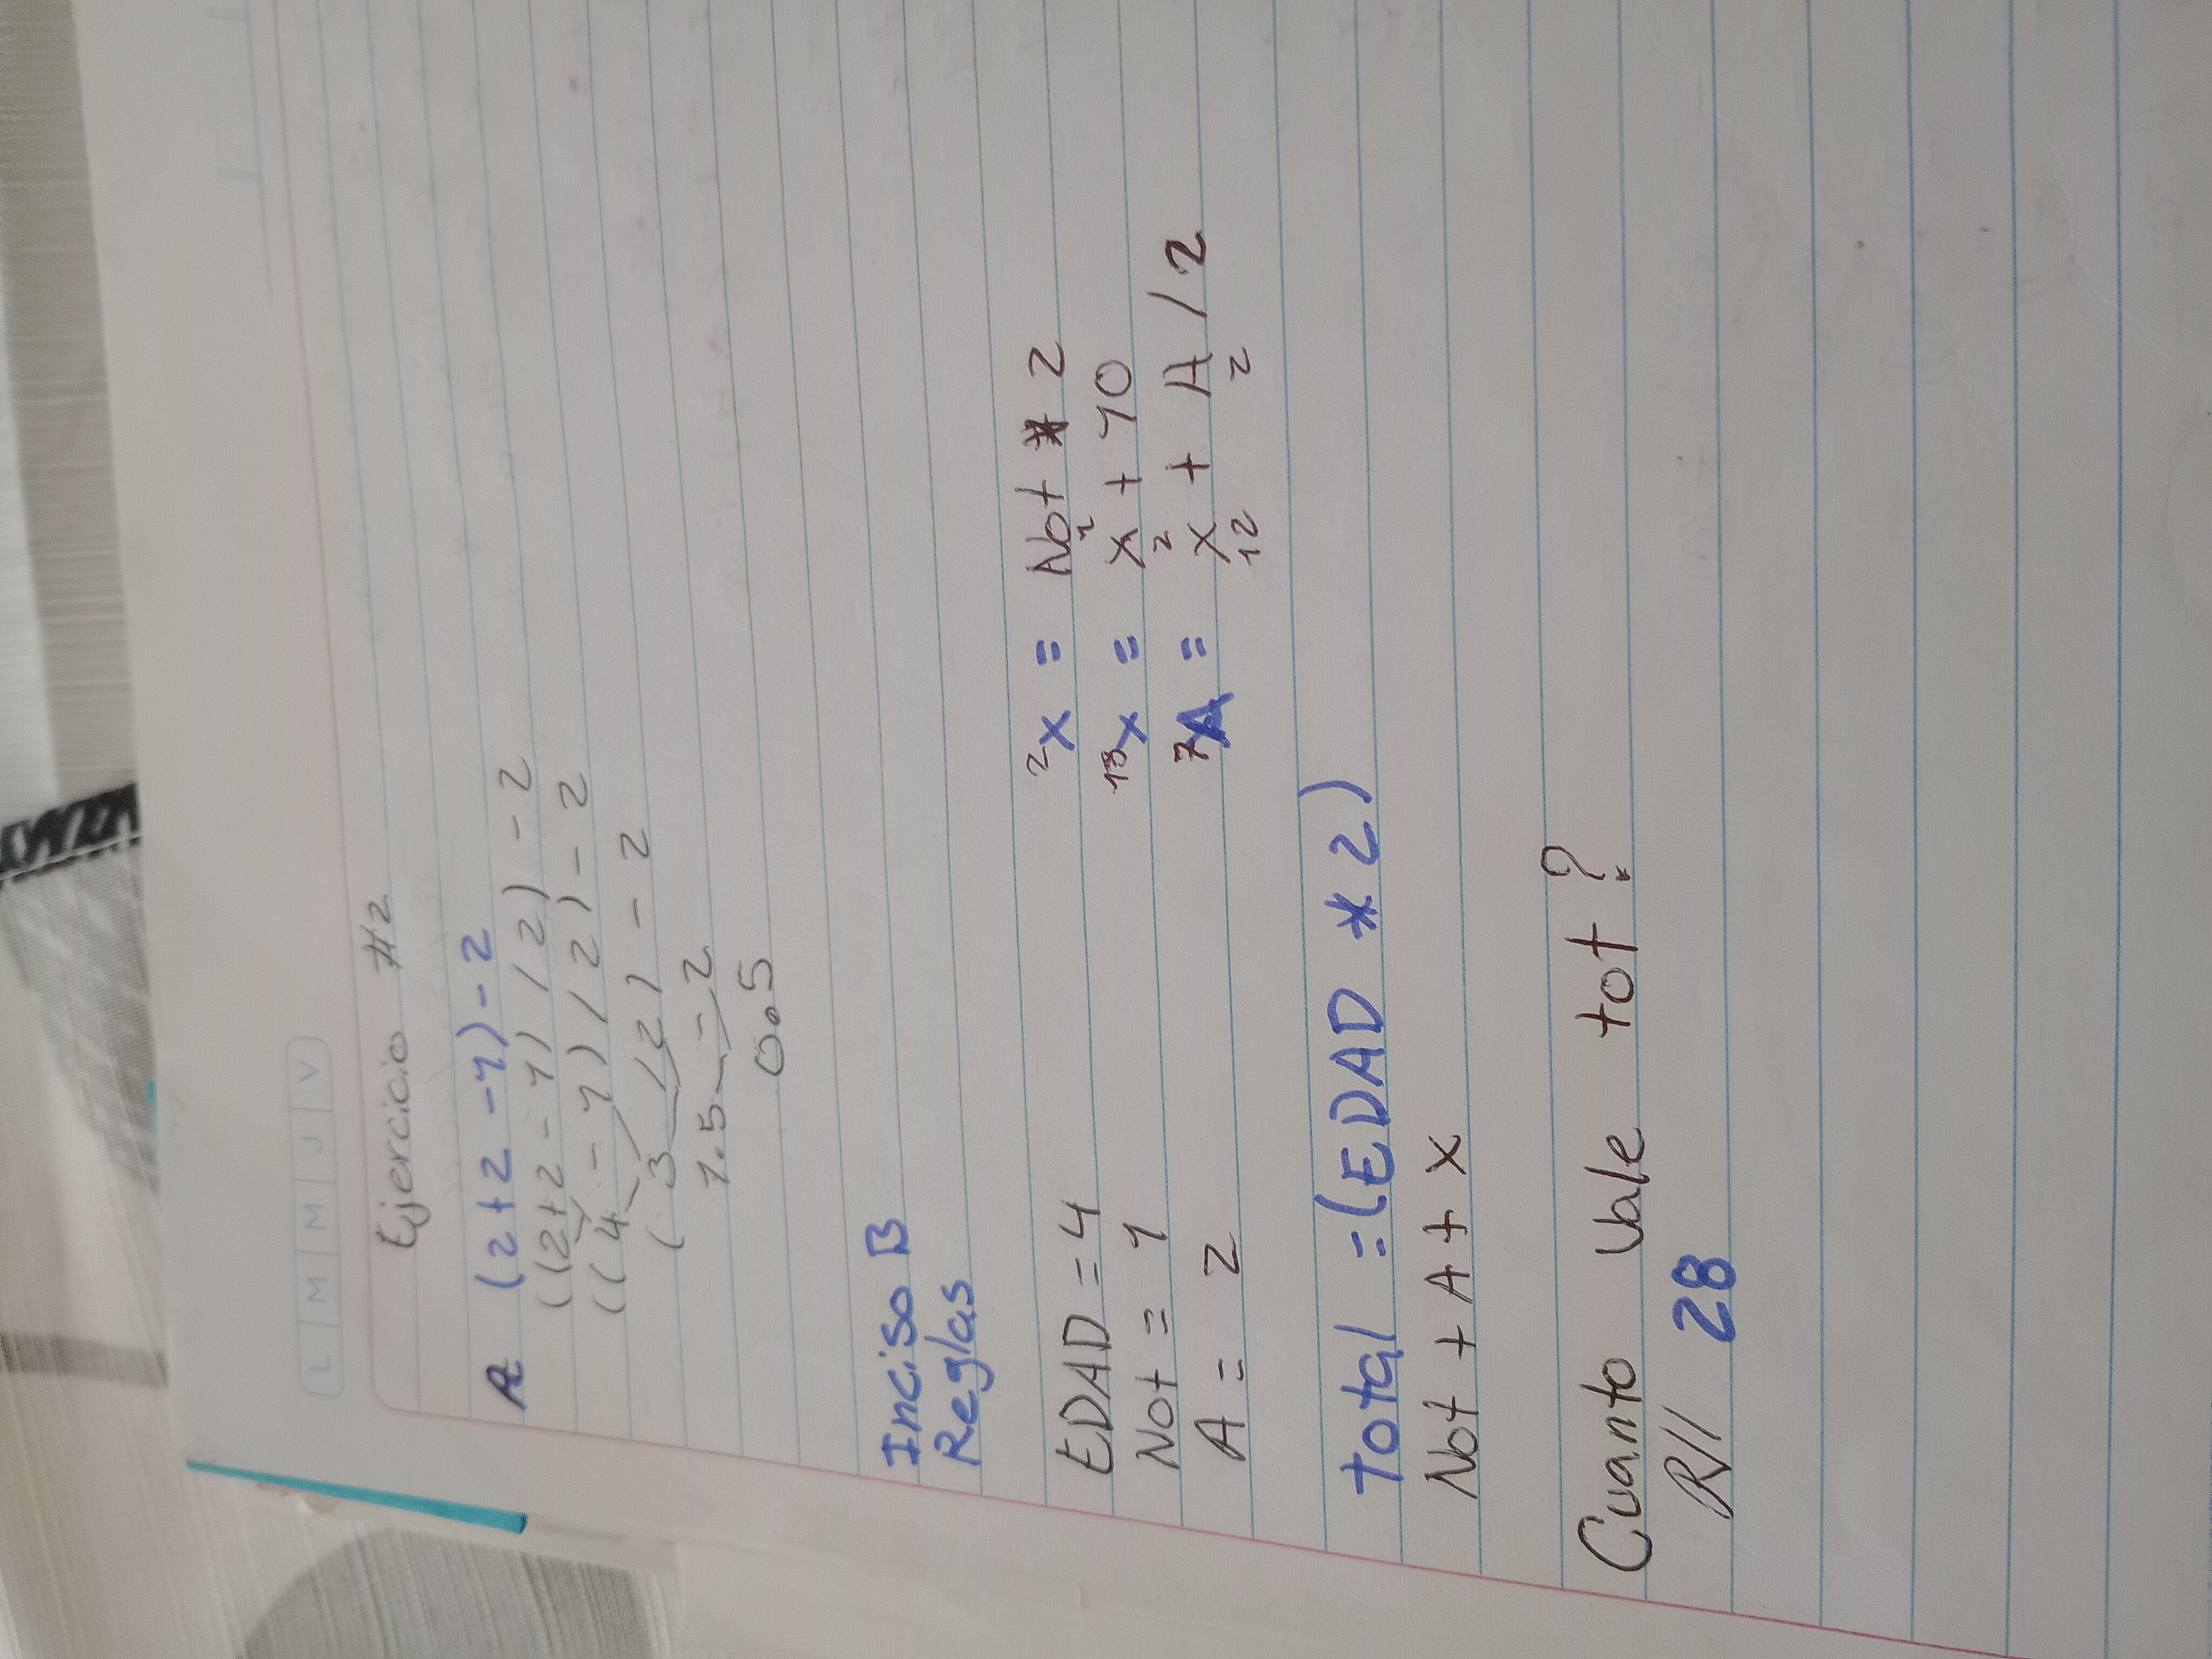 L M M J V
Ejercicio #2
A (2+2-1)-2
((2+2-1)/2)-2
((4-1)/2)-2
(3/2)-2
1.5-2
0.5
Inciso B
Reglas
EDAD = 4
Not = 1
A = 2
2 x = Not * 2
1
13 x = x + 10
2
7 A = x + A / 2
12 2
Total = (EDAD * 2)
Not + A + x
Cuanto vale tot?
R// 28